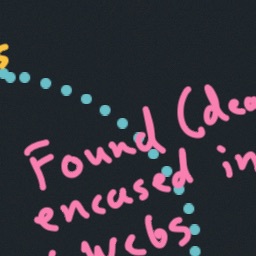 s
Found (dea
encased in
webs